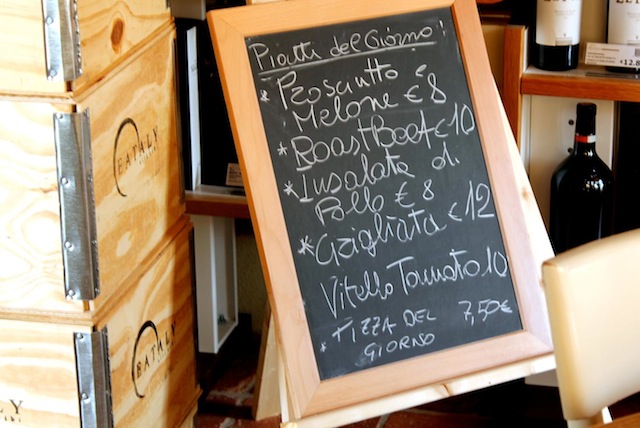 Piatti del Giorno!
* Prosciutto e
Melone € 8
* Roast Beef € 10
* Insalata di
Pollo € 8
* Grigliata € 12
Vitello Tonnato 10
* PIZZA DEL 7,50€
GIORNO
EATALY
EATALY
LY
€12.8